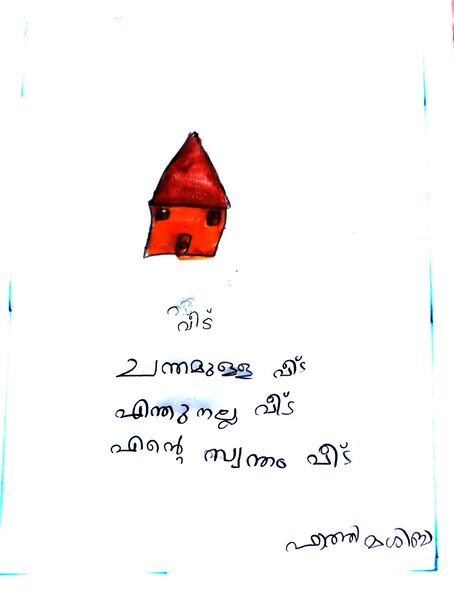 വീട്
ചന്തമുള്ള വീട്
എന്തു നല്ല വീട്
എന്റെ സ്വന്തം വീട്
മശിബ